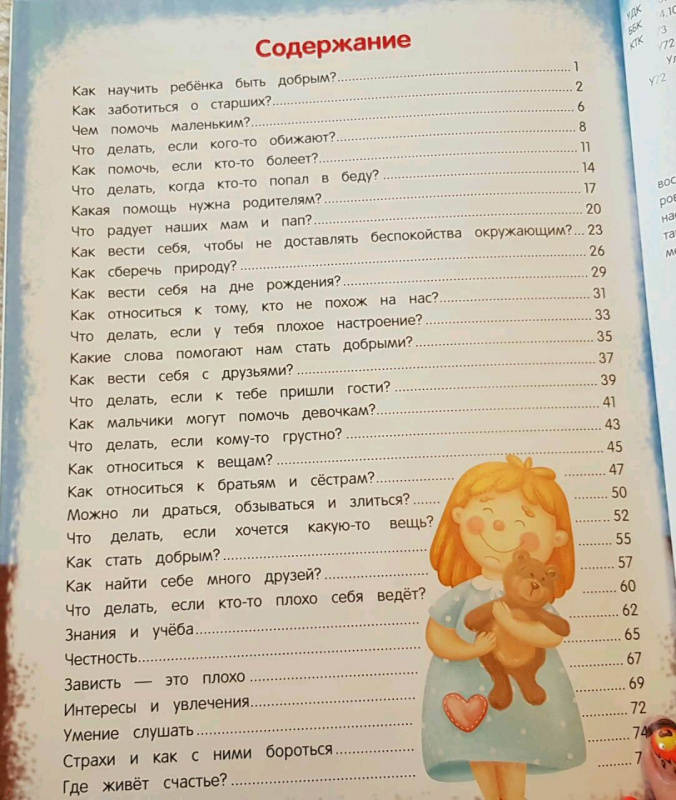 Содержание
Как научить ребёнка быть добрым?........ 1
Как заботиться о старших?........ 2
Чем помочь маленьким?........ 6
Что делать, если кого-то обижают?........ 8
Как помочь, если кто-то болеет?........ 11
Что делать, когда кто-то попал в беду?........ 14
Какая помощь нужна родителям?........ 17
Что радует наших мам и пап?........ 20
Как вести себя, чтобы не доставлять беспокойства окружающим?... 23
Как сберечь природу?........ 26
Как вести себя на дне рождения?........ 29
Как относиться к тому, кто не похож на нас?........ 31
Что делать, если у тебя плохое настроение?........ 33
Какие слова помогают нам стать добрыми?........ 35
Как вести себя с друзьями?........ 37
Что делать, если к тебе пришли гости?........ 39
Как мальчики могут помочь девочкам?........ 41
Что делать, если кому-то грустно?........ 43
Как относиться к вещам?........ 45
Как относиться к братьям и сёстрам?........ 47
Можно ли драться, обзываться и злиться?........ 50
Что делать, если хочется какую-то вещь?........ 52
Как стать добрым?........ 55
Как найти себе много друзей?........ 57
Что делать, если кто-то плохо себя ведёт?........ 60
Знания и учёба........ 62
Честность........ 65
Зависть — это плохо........ 67
Интересы и увлечения........ 69
Умение слушать........ 72
Страхи и как с ними бороться........ 74
Где живёт счастье?........ 7
УДК
ББК
КТК
У72